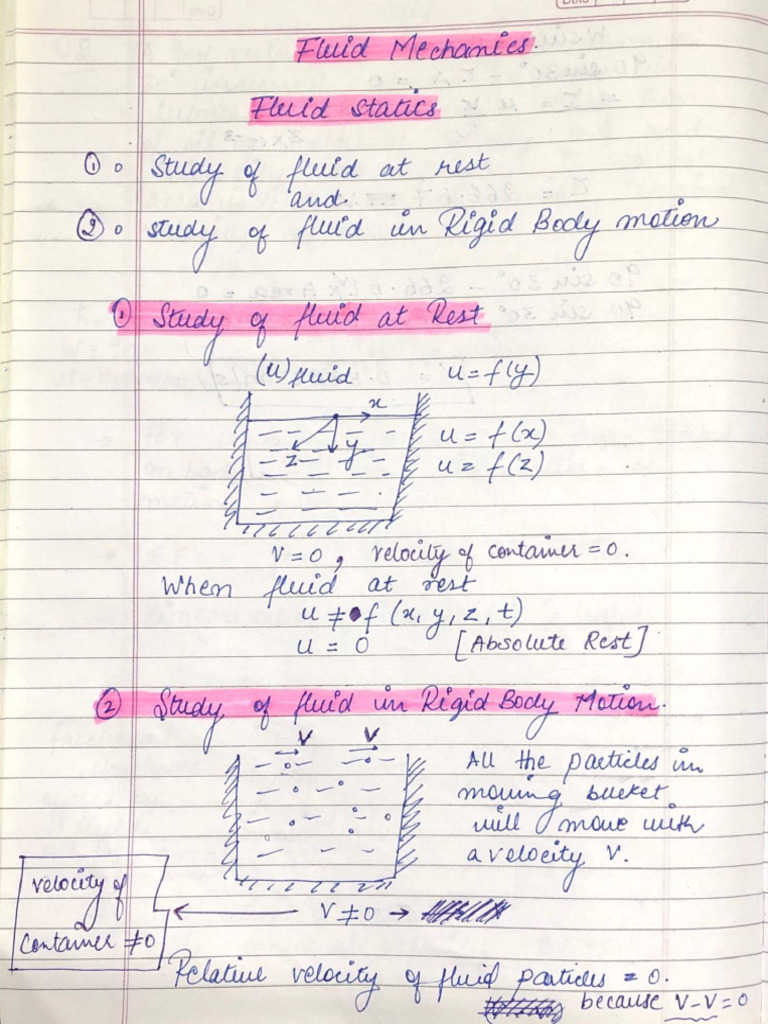 Fluid Mechanics.
Fluid statics
① ० Study of fluid at rest
and.
② ० study of fluid in Rigid Body motion
① Study of fluid at Rest
(u) fluid u = f(y)
x
u = f(x)
z y
u = f(z)
V = 0 , velocity of container = 0.
When fluid at rest
u ≠ f (x, y, z, t)
u = 0 [Absolute Rest]
② Study of fluid in Rigid Body Motion.
V V
All the particles in
moving bucket
will move with
a velocity V.
velocity of
Container ≠ 0
V ≠ 0
Relative velocity of fluid particles = 0.
because V-V = 0